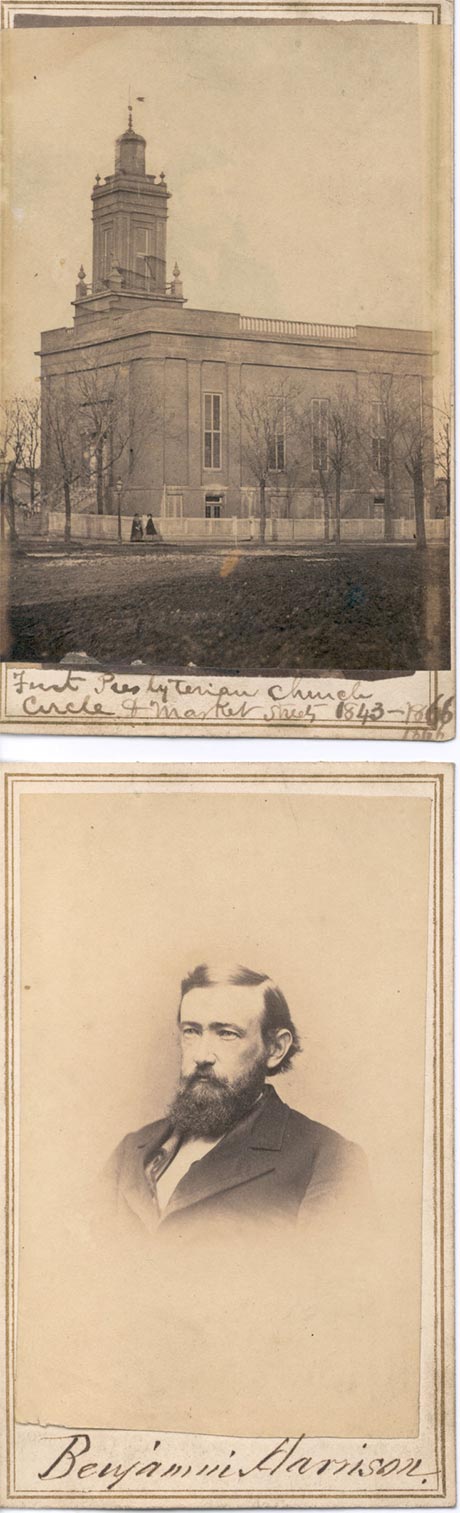 First Presbyterian Church
Circle & Market Streets 1843-1866
1866
Benjamin Harrison.